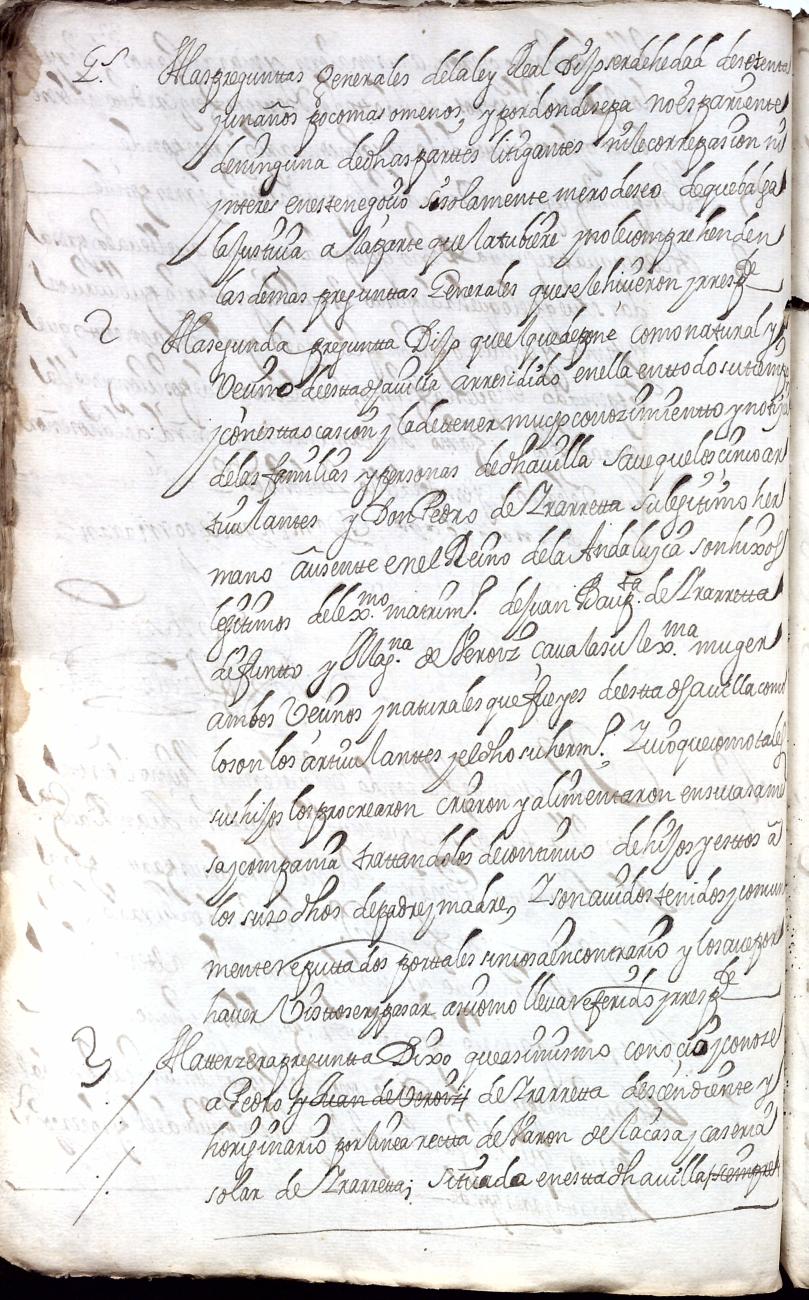 Gs. Alas preguntas Generales de la ley Real Dijo ser de hedad de setenta
y un años poco mas o menos, y por donde sepa no es pariente
de ninguna de dhas parttes litigantes ni le corre pasion ni
ynteres en este negocio si solamente mero deseo de que balga
la Justicia a la parte que la tubiere y no le comprehenden
las demas preguntas Generales que se le hicieron y resp.de
2 Ala segunda pregunta Dijo que el que depone como natural y
Vecino de estta dha villa a rresidido en ella en ttodo su tiempo
y con estta ocasion y la de tener mucho conozimientto y noticia
de las familias y personas de dha villa save que los cinco ar
ticulantes y Don Pedro de Yrarretta su legitimo her
mano ausente en el Reino de la Andalucia son hixos
legitimos de lex.mo matrim.o de Juan Baup.ta de Yrarretta
difuntto y Mag.na de Veroiz cavala su lex.ma muger
ambos Vecinos y naturales que fueron de estta dha villa como
lo son los articulanttes y el dho su herm.o Y vio que como tales
sus hijos los procrearon criaron y alimentaron en su casa me
sa y compania trattandoles de continuo de hijos y esttos a
los suso dhos de padre y madre, Y son avidos tenidos y comun
mente reputtados por tales sin cosa en contrario y lo save por
haver Visttoser y pasar asi como lleva referido y resp.de
3 Ala terzera pregunta Dixo que asimismo conocio y conoze
a Pedro y Juan de Veroiz de Yrarretta descendiente y
horiginario por linea rectta de Varon de la casa y caseria
solar de Yrarretta; Sittuada en estta dha villa